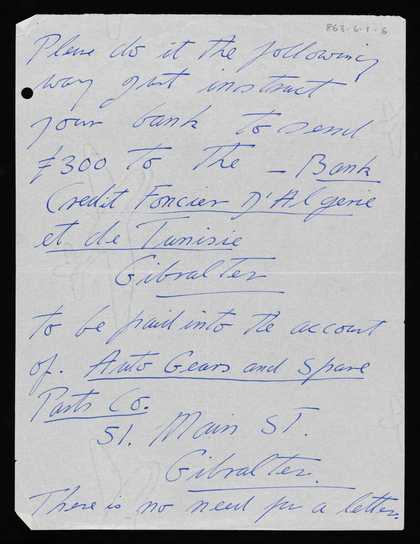 863-6-1-6
Please do it the following
way just instruct
your bank to send
£300 to the - Bank
Credit Foncier D'Algerie
et de Tunisie
Gibralter
to be paid into the account
of. Auto Gears and Spare
Parts Co.
51. Main ST.
Gibralter.
There is no need for a letter.